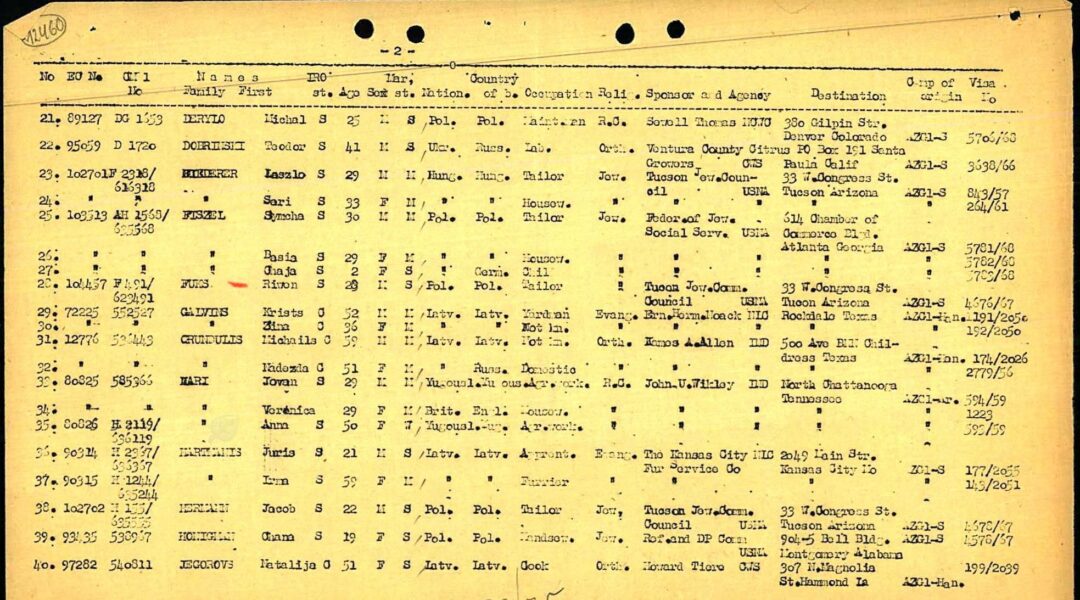 12460
- 2 -
No EC No. CM 1 Names IRO Mar, Country Camp of Visa
No Family First st. Age Sex st. Nation. of b. Occupation Relig. Sponsor and Agency Destination origin No
21. 89127 DG 1653 DERYLO Michal S 25 M S Pol. Pol. R.C. Sewell Thomas NCWC 380 Gilpin Str.
Denver Colorado AZG1-S 5706/68
22. 95059 D 1720 DOBRINSKI Teodor S 41 M S Ukr. Russ. Lab. Orth. Ventura County Citrus PO Box 191 Santa
Growers CWS Paula Calif AZG1-S 3638/66
23. 102701 F 2318/ Laszlo S 29 M M Hung. Hung. Tailor Jew. Tucson Jew.Coun- 33 W.Congress St.
616318 cil USNA Tucson Arizona AZG1-S 843/57
24. " " " Sari S 33 F M " " Housew. " " " " 264/61
25. 103513 AH 1568/ FISZEL Symcha S 30 M M Pol. Pol. Tailor Jew. Feder.of Jew. 614 Chamber of
635568 Social Serv. USNA Commerce Bld.
Atlanta Georgia AZG1-S 5781/68
26. " " " Basia S 29 F M " " Housew. " " " " 5782/68
27. " " " Chaja S 2 F S " Germ. Chil " " " " 5783/68
28. 104437 F 491/ FUKS Riwon S M S Pol. Pol. Tailor " Tucon Jew.Comm. 33 W.Congress St.
629491 Council USNA Tucon Arizona AZG1-S 4676/67
29. 72225 552527 GALVINS Krists C 52 M M Latv. Latv. Yardman Evang. Ern.Herm.Noack NLC Rockdale Texas AZG1-Han. 191/2050
30. " " " Zina C 36 F M " " Not in. " " " " 192/2050
31. 12776 536443 GRUNDULIS Michails C 59 M M Latv. Latv. Not in. Orth. James A.Allen IND 500 Ave BNN Chil-
dress Texas AZG1-Han. 174/2026
32. " " " Nadezda C 51 F M " Russ. Domestic " " " " 2779/56
33. 80825 585366 HARI Jovan S 29 M M Yugousl. Agr.work. R.C. John.U.Wibley IND North Chattanooga
Tennessee 594/59
34. " " " Veronica 29 F M Brit. Engl. Housew. " " " " 1223
35. 80826 H 2119/ " Anna S 50 F W Yugousl. Agr.work. " " " " 595/59
636119
36. 90314 H 2367/ HARTMANIS Juris S 21 M S Latv. Latv. Apprent. Evang. The Kansas City NLC 2049 Main Str.
636367 Fur Service Co Kansas City Mo AZG1-S 177/2055
37. 90315 H 1244/ " Irma S 59 F M " " Furrier " " " " 143/2051
635244
38. 102702 H 155/ HERMANN Jacob S 22 M S Pol. Pol. Tailor Jew, Tucson Jew.Comm. 33 W.Congress St.
Council USNA Tucson Arizona AZG1-S 4678/67
39. 93435 538967 HONIGMAN Chana S 19 F S Pol. Pol. Handsew. Jew. Ref.and DP Comm 904-5 Bell Bldg. AZG1-S 4578/67
USNA Montgomery Alabama
40. 97282 540811 JEGOROVS Natalija C 51 F S Latv. Latv. Cook Orth. Howard Tiore CWS 307 N.Magnolia 199/2039
St.Hammond La AZG1-Han.